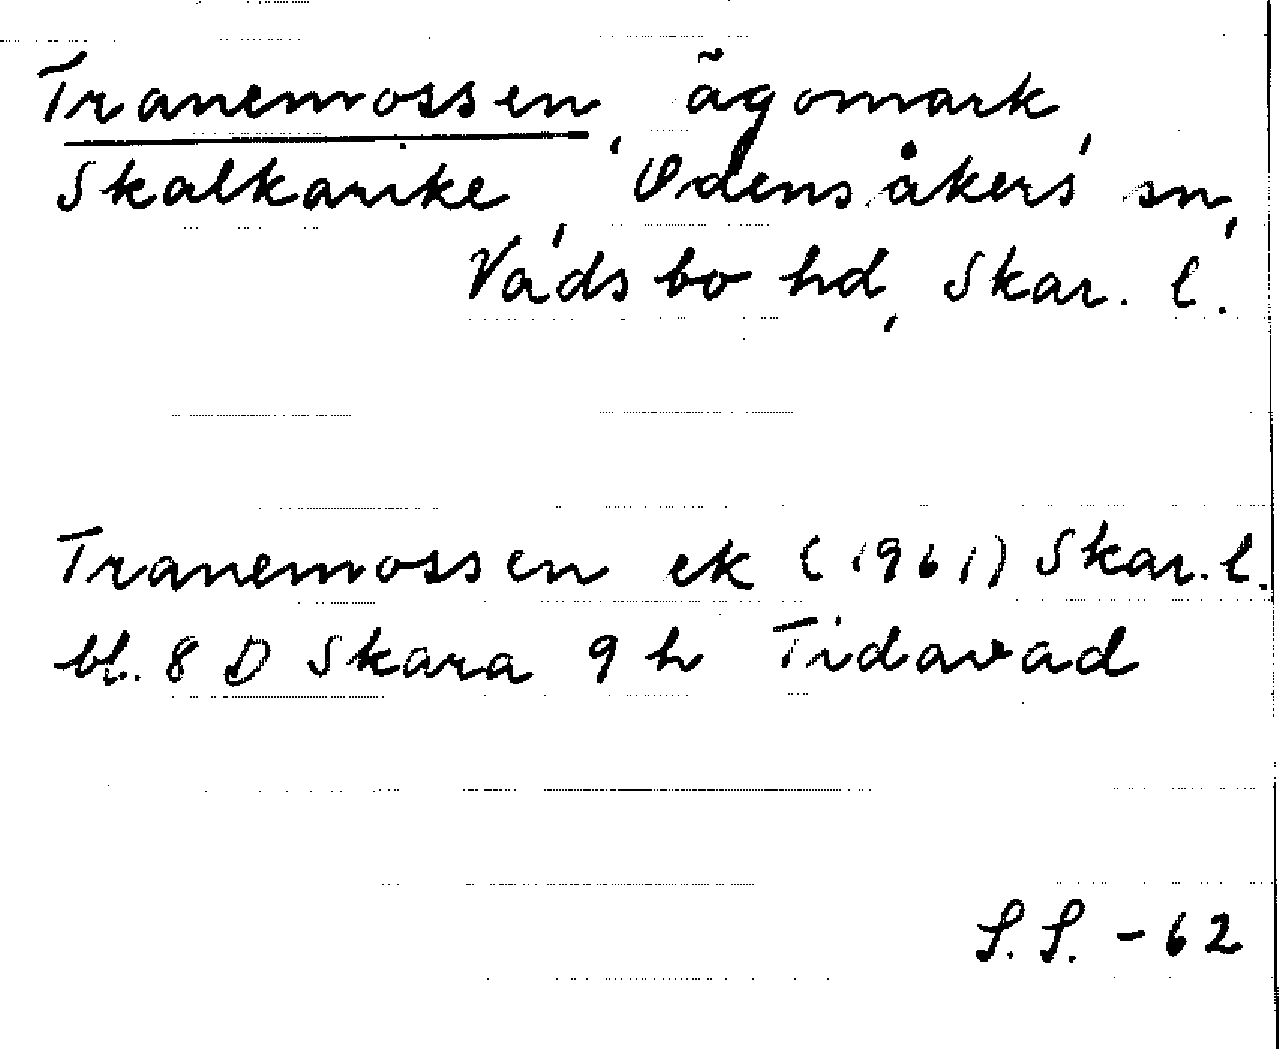 Tranemossen, ägomark,
Skalkarike, Odensåkers sn,
Vadsbo hd, Skar. l.
Tranemossen ek (1961) Skar. l.
bl. 8 D Skara 9 h Tidavad
S.S. - 62